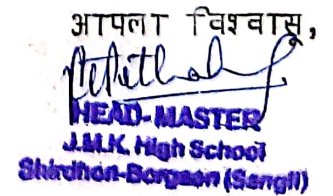 आपला विश्वासू,
HEAD-MASTER
J.M.K. High School
Shirdhon-Borgaon (Sangli)